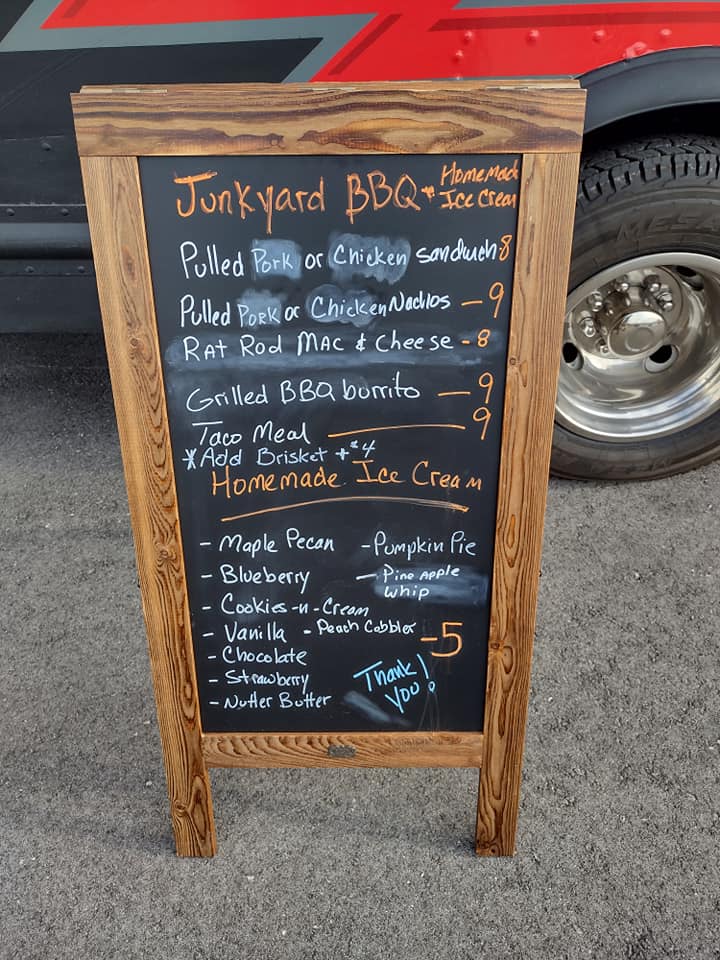 Junkyard BBQ + Homemade
Ice Cream
Pulled Pork or Chicken sandwich - 8
Pulled Pork or Chicken Nachos - 9
Rat Rod Mac & Cheese - 8
Grilled BBQ burrito - 9
Taco Meal - 9
*Add Brisket + $4
Homemade Ice Cream
- Maple Pecan
- Pumpkin Pie
- Blueberry
- Pine Apple
Whip
- Cookies-n-Cream
- Vanilla
- Peach Cobbler
- 5
- Chocolate
- Strawberry
- Nutter Butter
Thank
You!
MESA